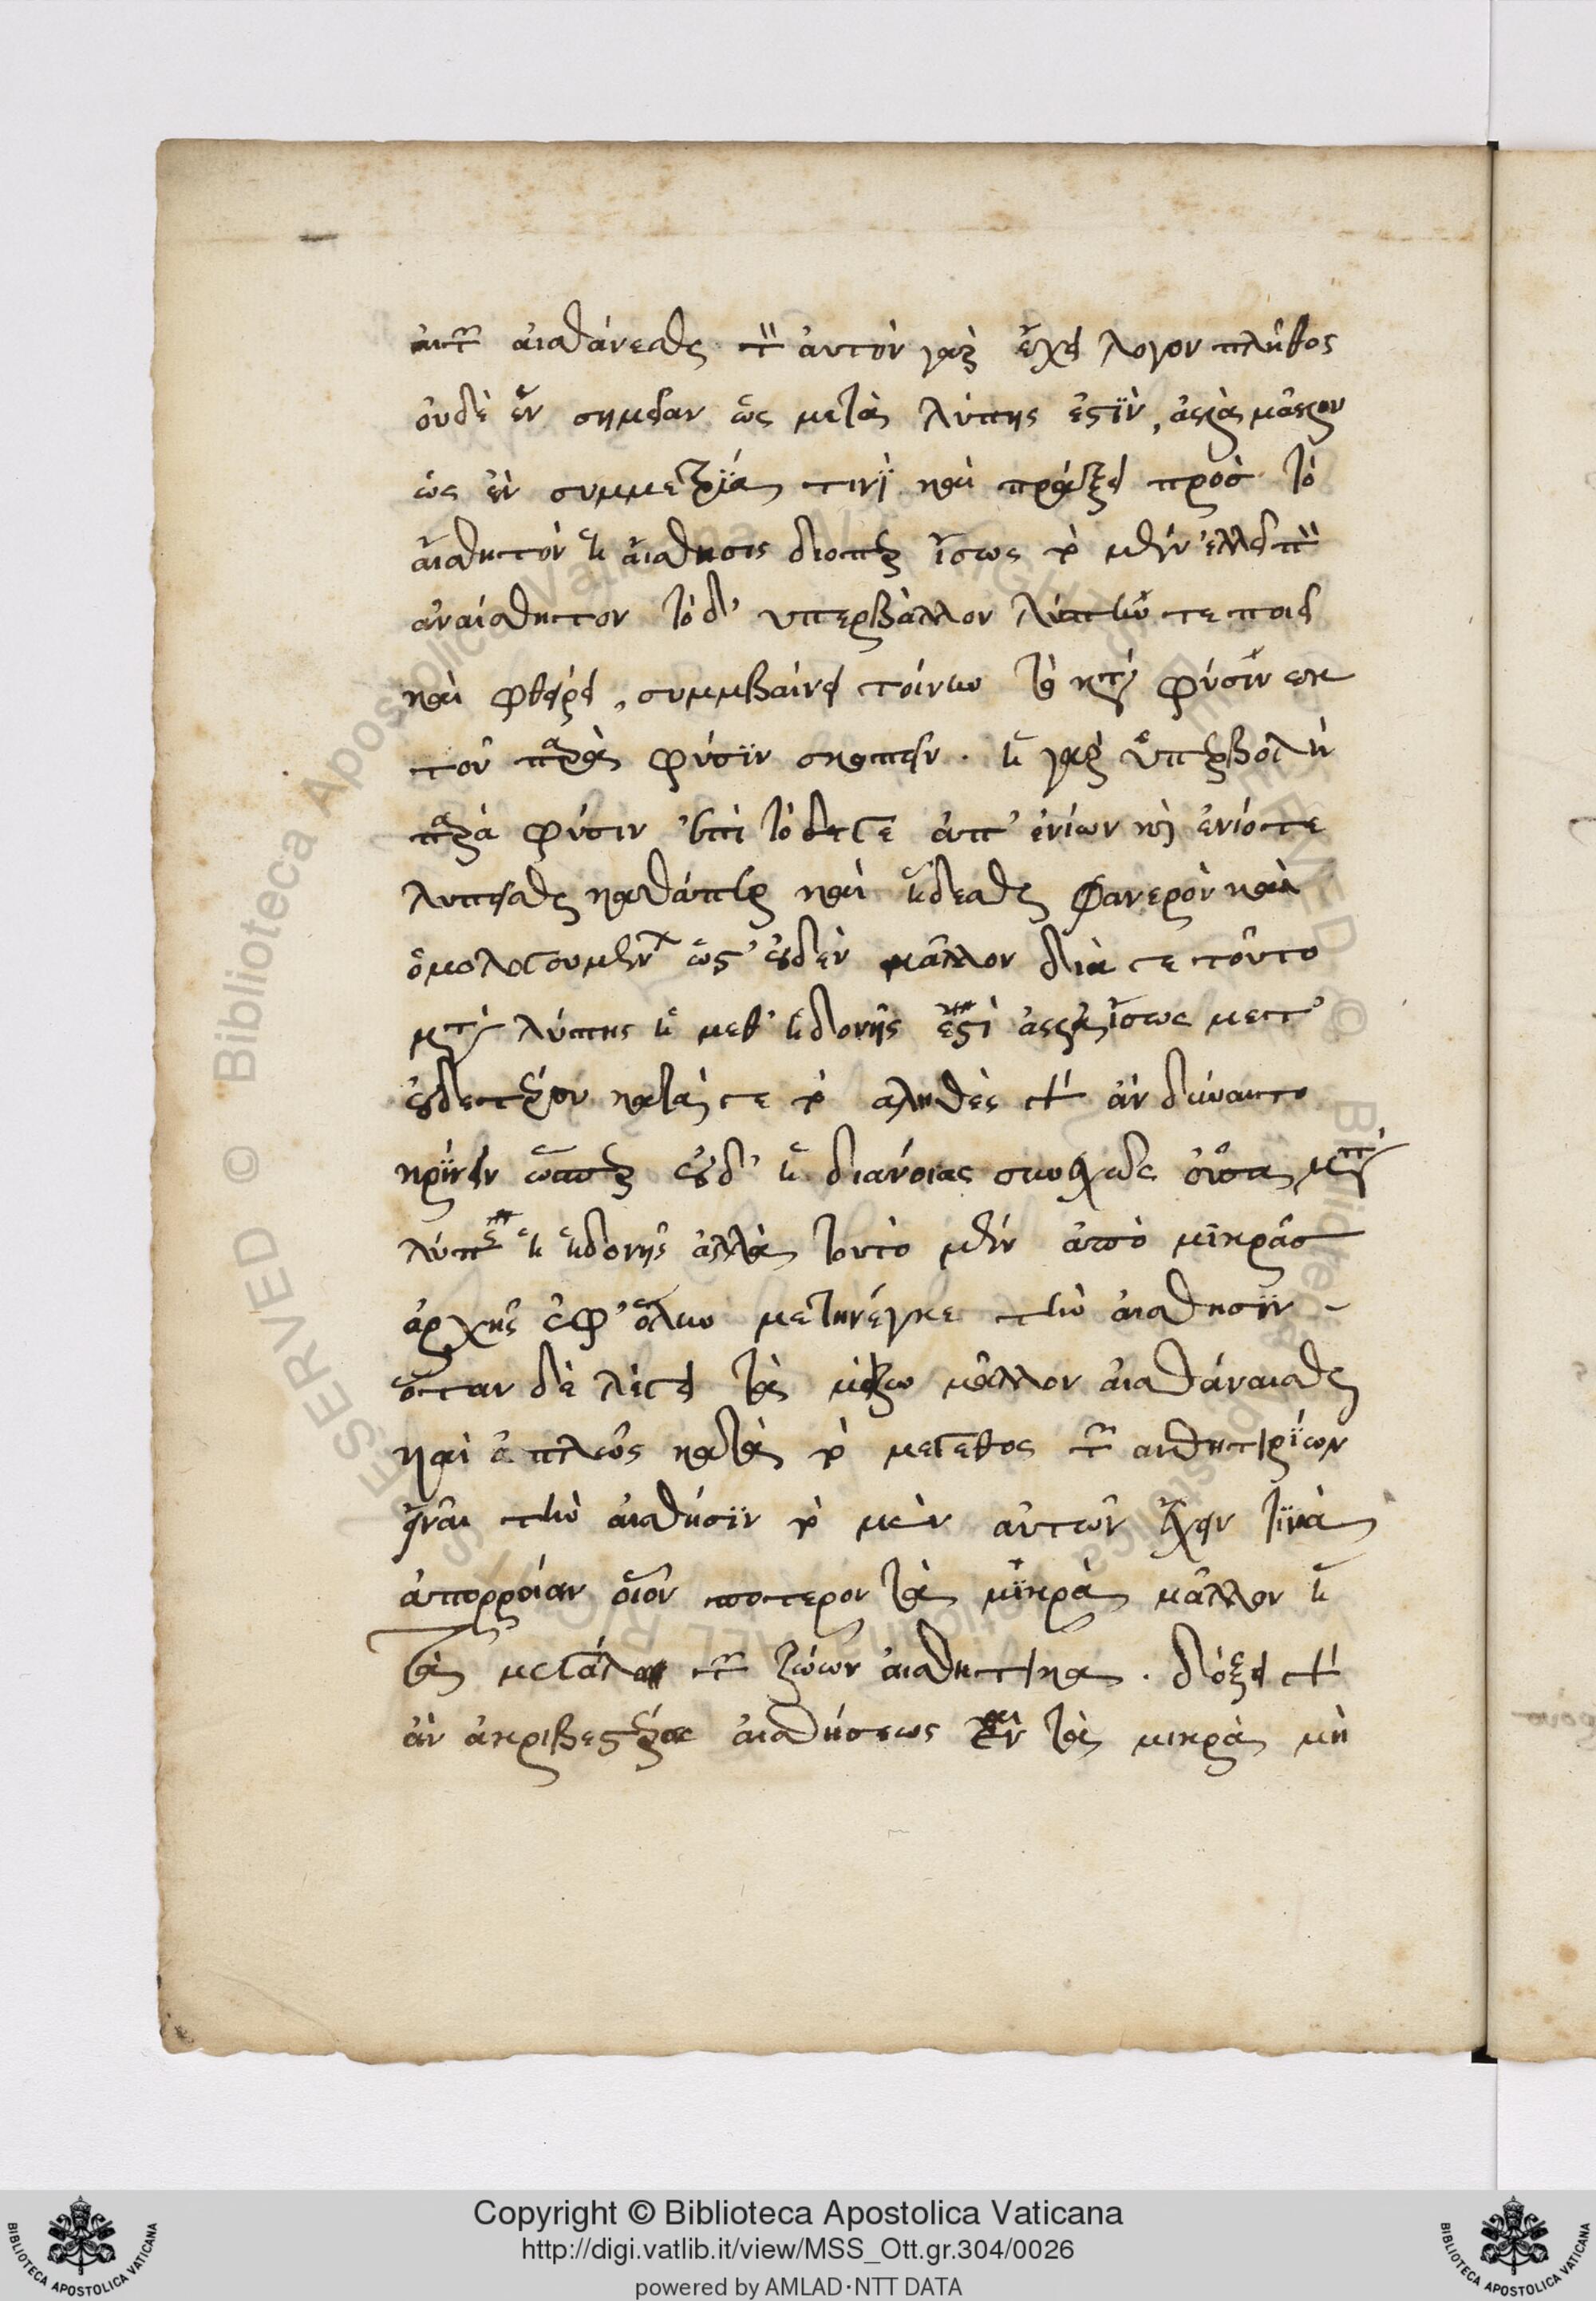 αὐτῶν αἰσθάνεσθαι τὸν αὐτὸν γὰρ ἔχει λόγον πλῆθος
οὐδὲ ἓν σημεῖον ὡς μετὰ λύπης ἐστὶν, ἀλλὰ μᾶλλον
ὡς ἐν συμμετρία τινὶ καὶ πράξει πρὸς τὸ
αἰσθητὸν ἡ αἴσθησις διόπερ ἴσως τὸ μὲν ἐλλεῖπον
ἀναίσθητον τὸ δ' υπερβάλλον λύπην τε ποιεῖ
καὶ φθείρει, συμμβαίνει τοίνυν τὸ κατὰ φύσιν εκ
τοῦ παρὰ φύσιν σκοπεῖν. ἡ γὰρ ὑπερβολὴ
παρὰ φύσιν ἐπὶ τὸ δέ γε ἀπ' ἐνίων καὶ ἐνίοτε
λυπεῖσθαι καθάπερ καὶ ἥδεσθαι φανερὸν καὶ
ὁμολογουμεν ὡς' οὐδὲν μᾶλλον διά γε τοῦτο
μετὰ λύπης ἢ μεθ' ἡδονῆς ἐστὶ ἀλλ' ἴσως μετ'
οὐδετέρου κατά γε τὸ αληθὲς οὐ ἂν δύναιτο
κρίνειν ὥσπερ οὐδ' ἡ διάνοιας συνεχῶς οὖσα μετὰ
λύπης ἢ ἡδονῆς ἀλλὰ τουτο μὲν ἀπὸ μικρᾶσ
ἀρχῆς ἐφ' ὅλην μετήνέγκε τὴν αἴσθησιν -
ὅταν δὲ λέγει τὰ μείζω μᾶλλον αἰσθάναισθαι
καὶ ἁπλῶς κατὰ τὸ μέγεθος τῶν αισθητηρίων
εἶναι τὴν αἰσθήσιν τὸ μὲν αὐτῶν ἔχειν τινὰ
ἀπορροίαν οἷον ποτερον τὰ μικρὰ μᾶλλον ἢ
τὰ μεγάλα τῶν ζώων αἰσθητικα. δόξει
ἂν ἀκριβεστέρας αἰσθήσεως εἶναι τὰ μικρὰ μὴ
Copyright © Biblioteca Apostolica Vaticana
http://digi.vatlib.it/view/MSS_Ott.gr.304/0026
powered by AMLAD·NTT DATA